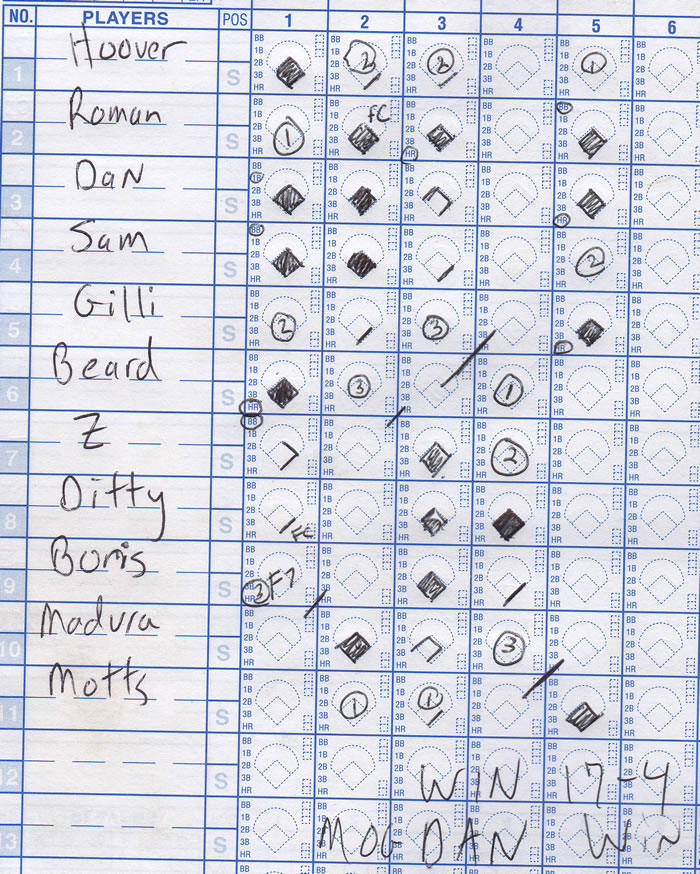 NO. PLAYERS POS 1 2 3 4 5 6
1 Hoover S 2 2 1
2 Roman S 1 FC
3 Dan S
4 Sam S 2
5 Gilli S 2 3
6 Beard S 3 1
7 Z S 2
8 Ditty S FC
9 Boris S 3 F7
10 Madura S 3
11 Motts S 1 1
12 S WIN 17-4
13 S DAN WIN